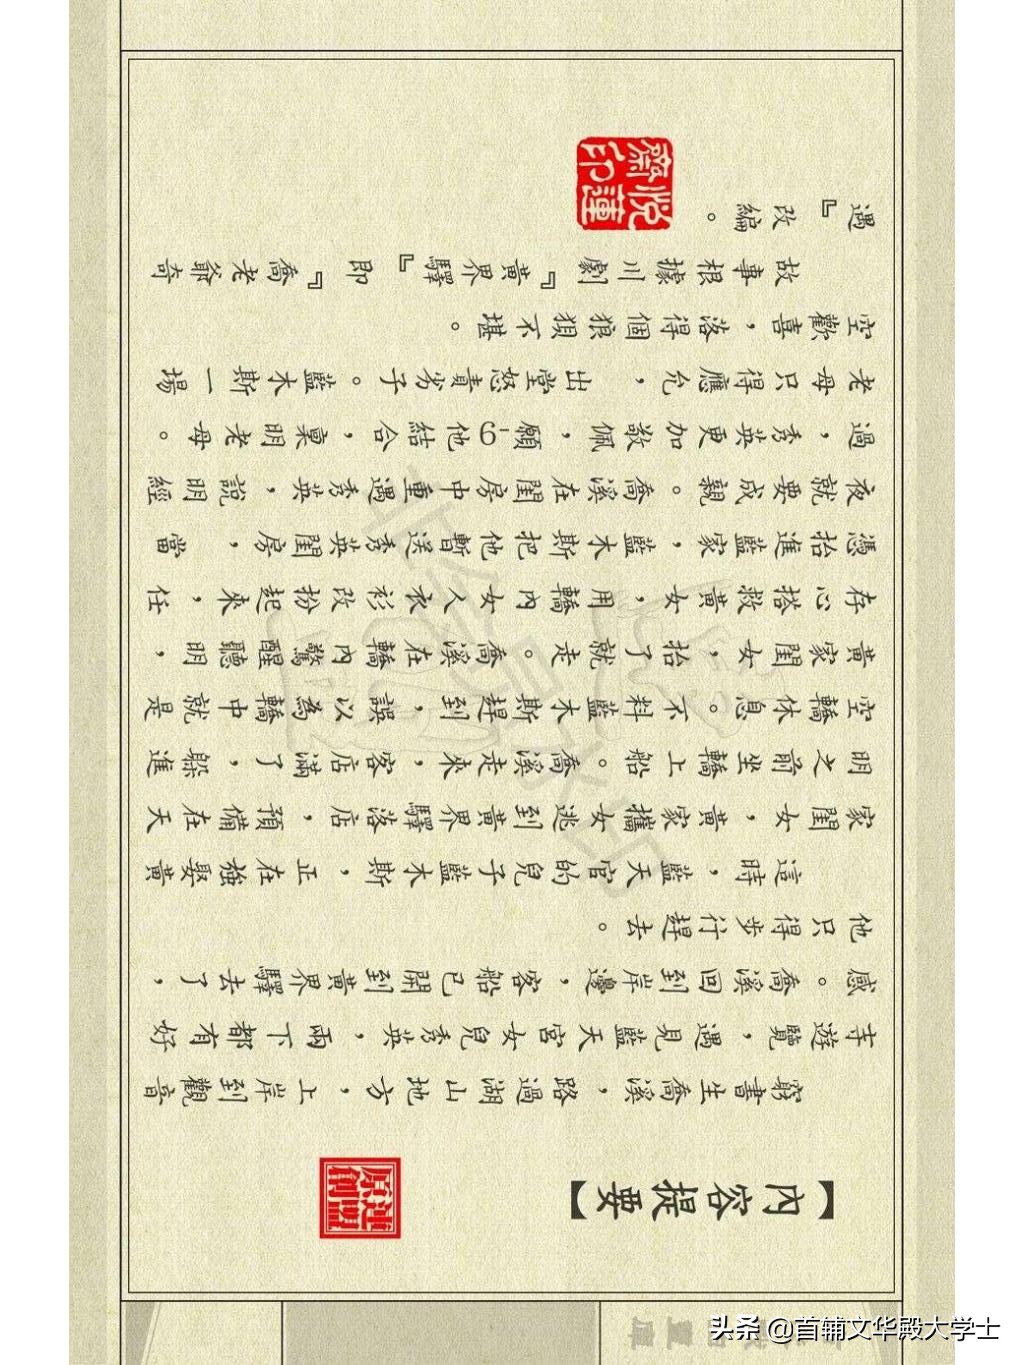 【內容提要】
連盟原創
窮書生喬溪，路過湖山地方，上岸到觀音
寺遊覽，遇見藍天宮女兒秀英，兩下都有好
感。喬溪回到岸邊，客船已開到黃界驛去了，
他只得步行趕去。
這時，藍天官的兒子藍木斯，正在強娶黃
家閨女，黃家攜女逃到黃界驛落店，預備在天
明之前坐轎上船。喬溪走來，客店滿了，躲進
空轎休息。不料藍木斯趕到，誤以為轎中就是
黃家閨女，抬了就走。喬溪在轎內驚醒聽明，
存心搭救黃女，用轎內女人衣衫改扮起來，任
憑抬進藍家，藍木斯把他暫送秀英閨房，當
夜就要成親。喬溪在閨房中重遇秀英，說明經
過，秀英更加敬佩，願-6他結合，稟明老母。
老母只得應允，出堂怒責劣子。藍木斯一場
空歡喜，落得個狼狽不堪。
故事根據川劇『黃界驛』即『喬老爺奇
遇』改編。
悅蓮齋印
头条 @首辅文华殿大学士